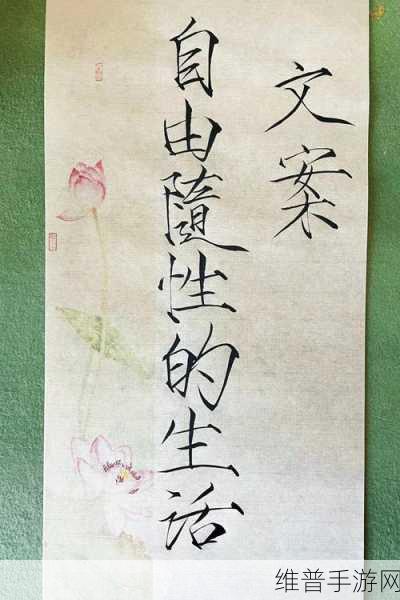 文案
自由隨性的生活
维普手游网